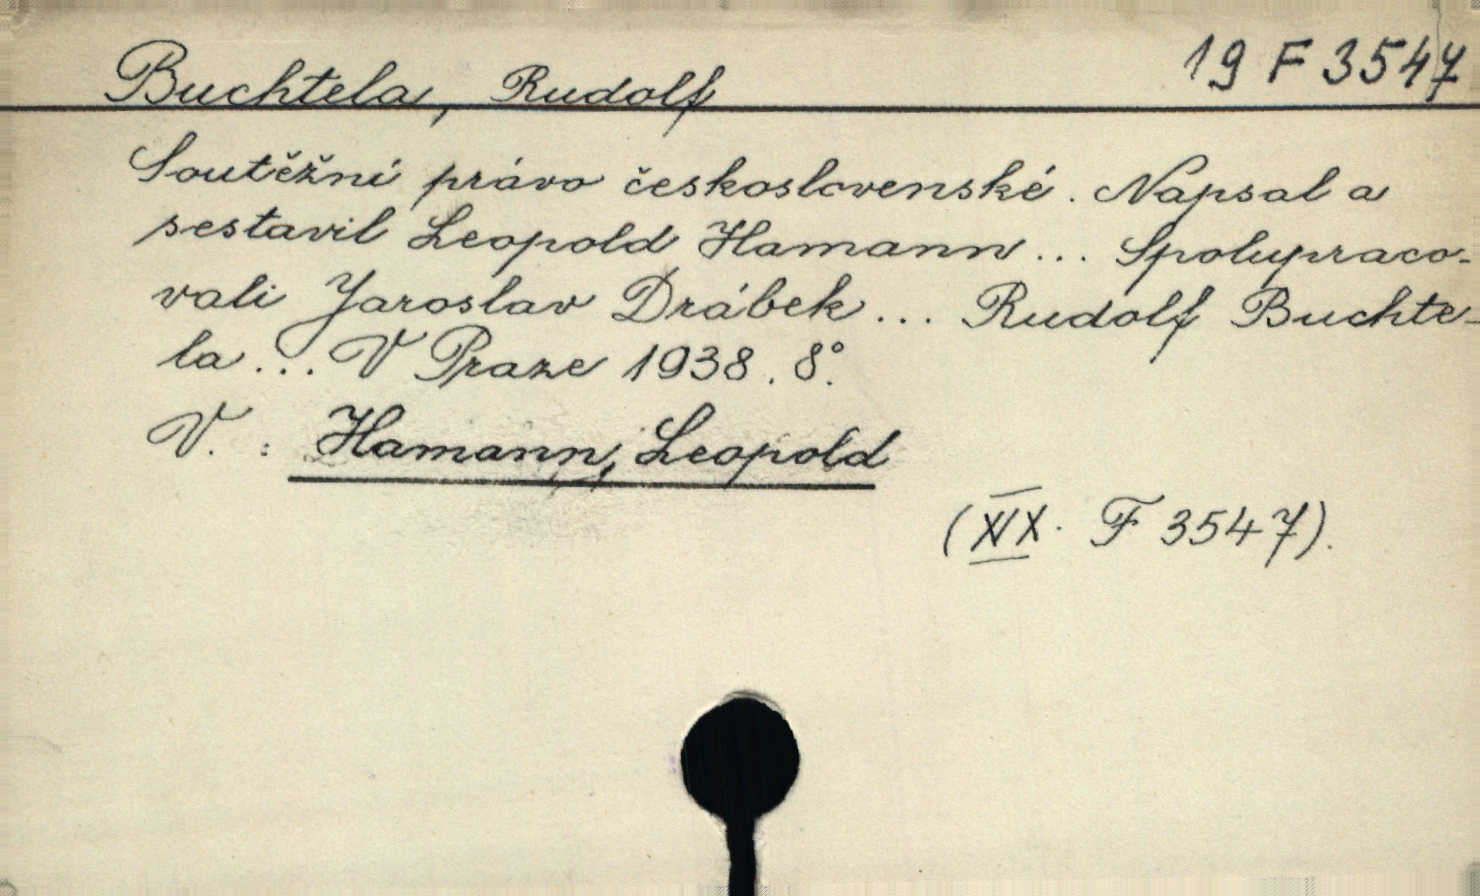 19 F 3547
Buchtela, Rudolf
Soutěžní právo československé. Napsal a
sestavil Leopold Hamann... Spolupraco-
vali Jaroslav Drábek... Rudolf Buchte-
la... V Praze 1938. 8°.
V. : Hamann, Leopold
(XIX. F 3547).